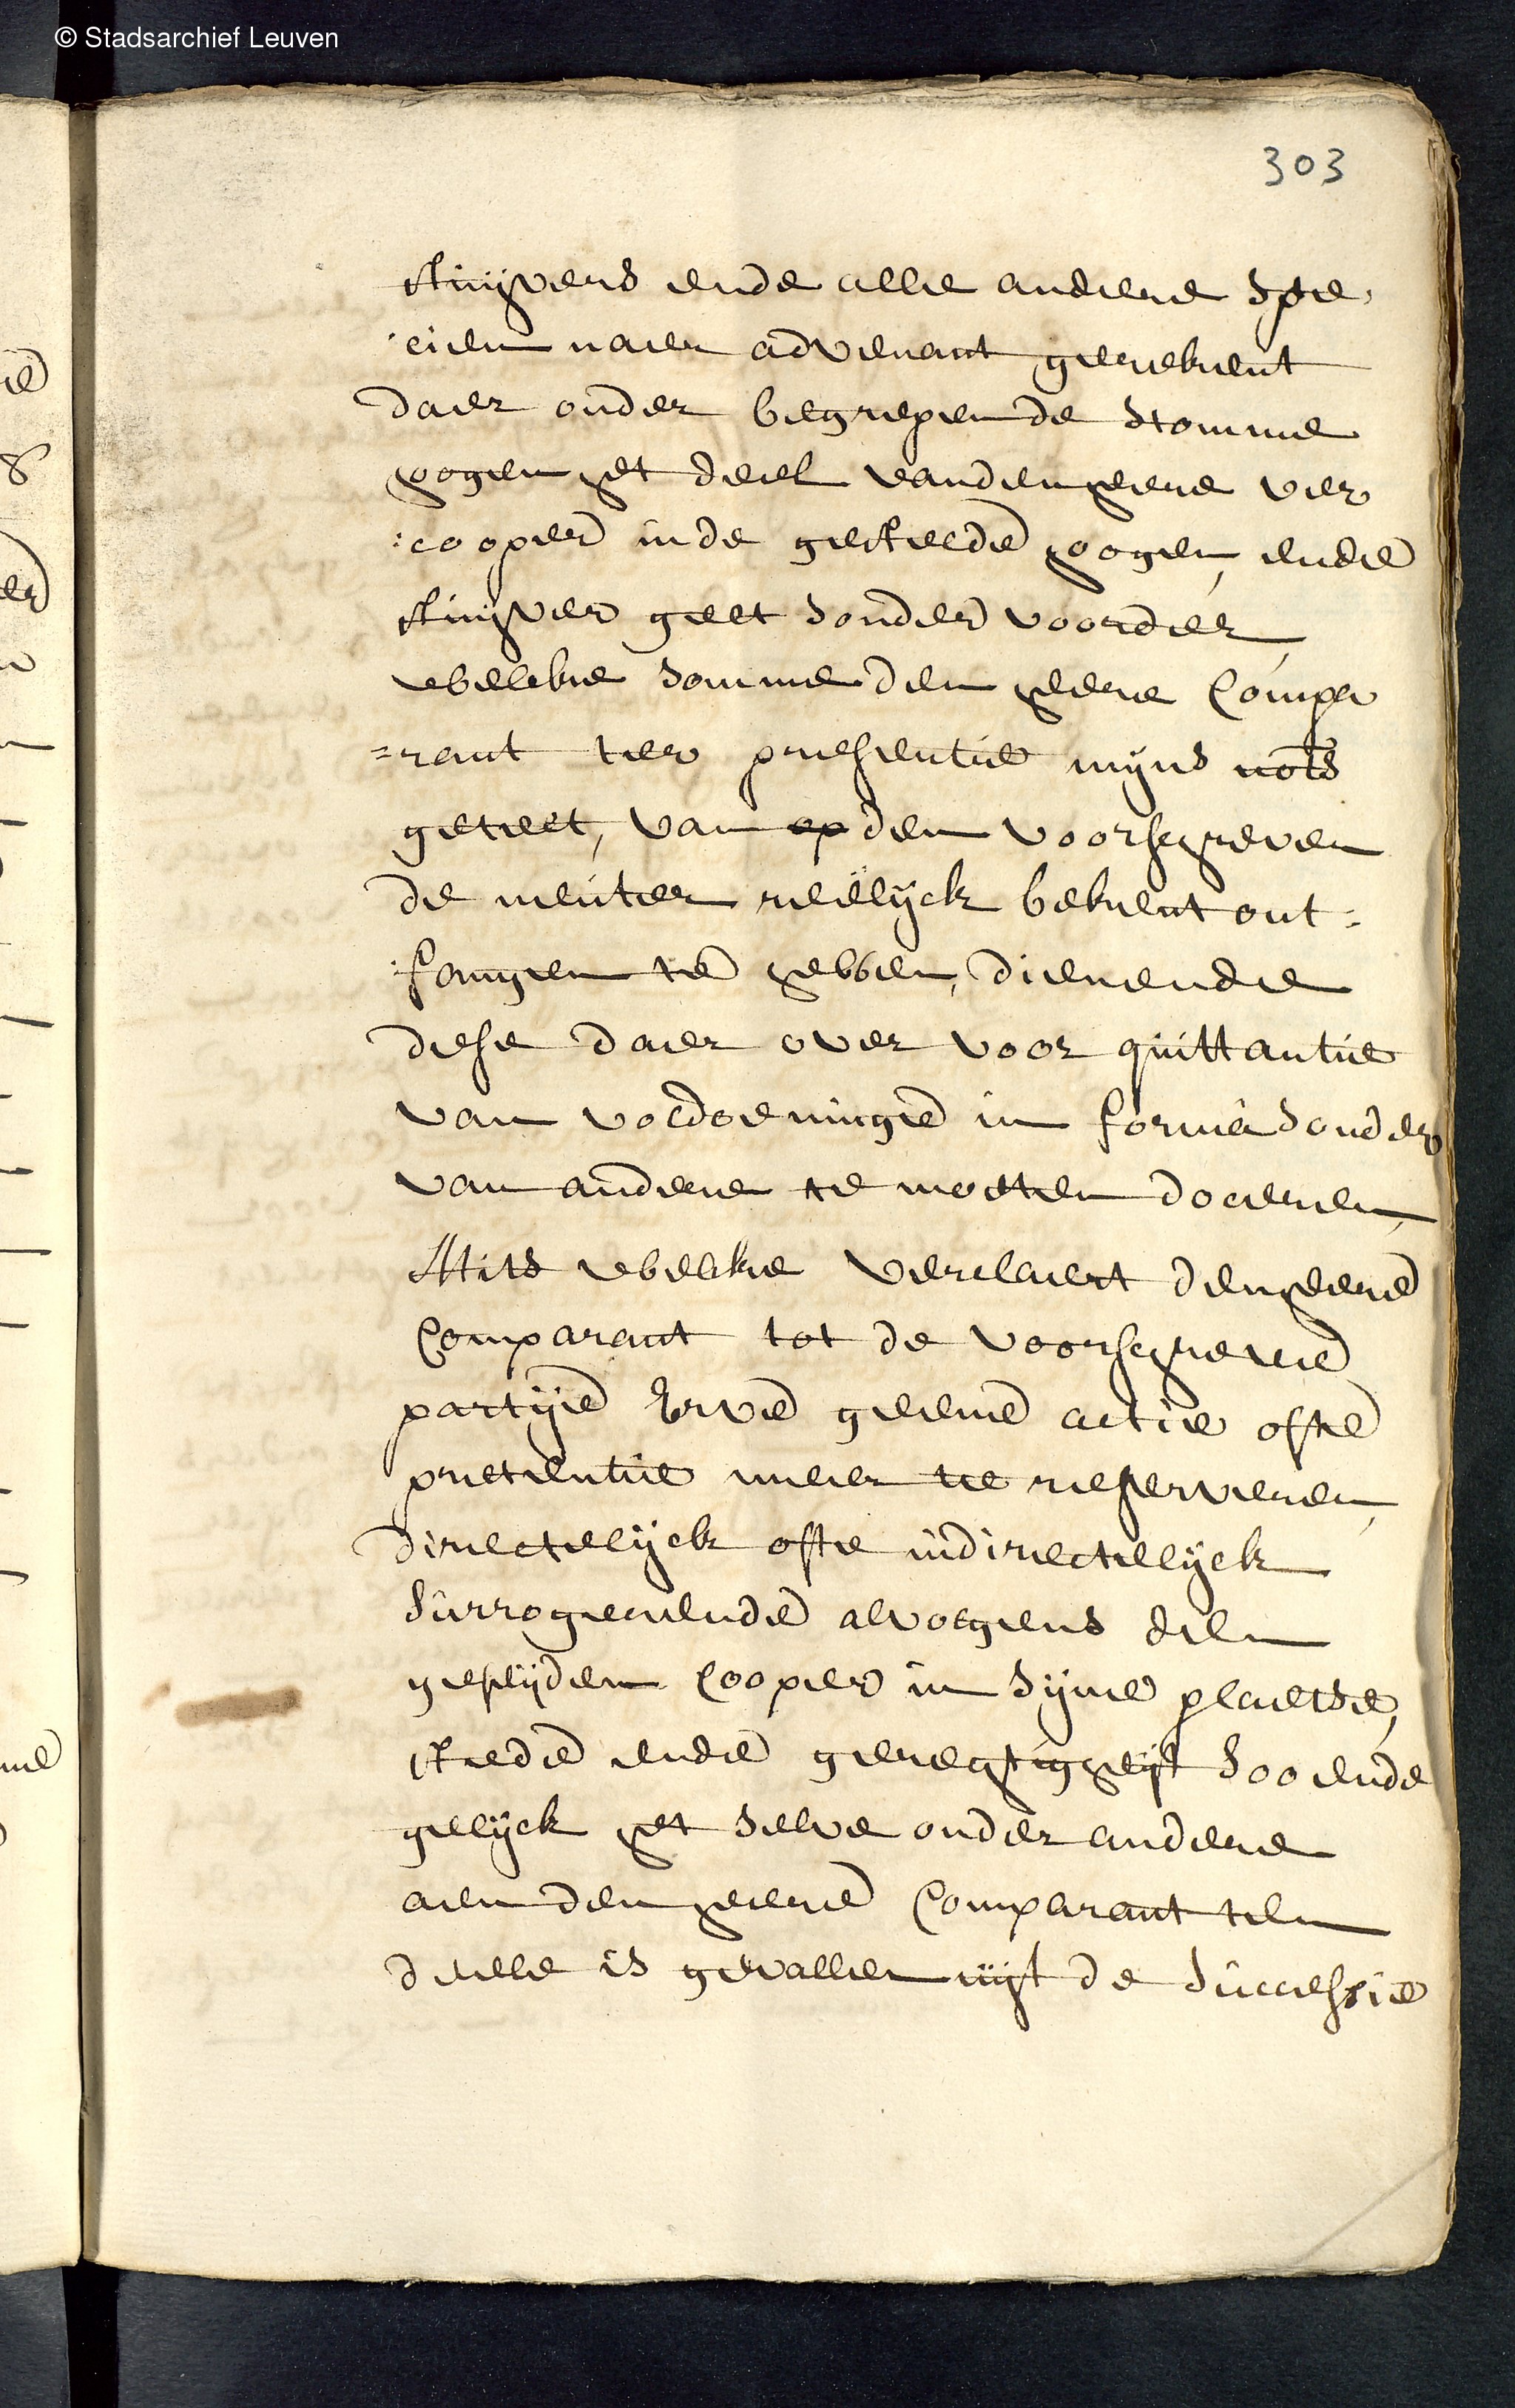 © Stadsarchief Leuven
303
stuijvers ende alle andere spe,
:cien naer advenant gerekent
daer onder begrepen de stomme
hogen het deel vanden heere ver
:cooper inde gestelde hogen, ende
stuijver gelt sonder voorder,
welcke somme den heere Compa
=rant ter presentie mijns nots
getelt, van op den voorschreven
de menter reëlijck bekent ont=
:fangen te hebben, dienende
dese daer over voor quittantie
van voldoeninge in forma sonder
van andere te moeten doceren,
Mits welcke verclaert den heere
Comparant tot de voorschreve
partije Erve geene actie ofte
pretentie meer te reserveren,
directelijck ofte indirectelijck
surrogerende alvolgens den
geseijden Cooper in sijne plaetse,
stede ende gerechtigheijt soo ende
gelijck het selve onder andere
aen den heere Comparant ten
deele is gevallen uijt de successie